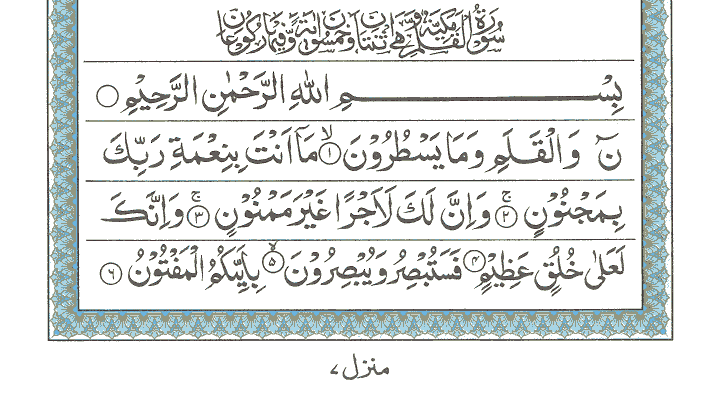 سُوْرَةُ الْقَلَمِ مَكِّيَّةٌ وَّهِيَ ثِنْتَانِ وَخَمْسُوْنَ اٰيَةً وَّفِيْهَا رُكُوْعَانِ
بِسْمِ اللّٰهِ الرَّحْمٰنِ الرَّحِيْمِ ○
نٓ وَالْقَلَمِ وَمَا يَسْطُرُوْنَ ۙ﴿۱﴾ مَاۤ اَنْتَ بِنِعْمَةِ رَبِّكَ
بِمَجْنُوْنٍ ۚ﴿۲﴾ وَاِنَّ لَكَ لَاَجْرًا غَيْرَ مَمْنُوْنٍ ۚ﴿۳﴾ وَاِنَّكَ
لَعَلٰى خُلُقٍ عَظِيْمٍ ﴿۴﴾ فَسَتُبْصِرُ وَيُبْصِرُوْنَ ۙ﴿۵﴾ بِاَيِّىكُمُ الْمَفْتُوْنُ ﴿۶﴾
منزل ۷